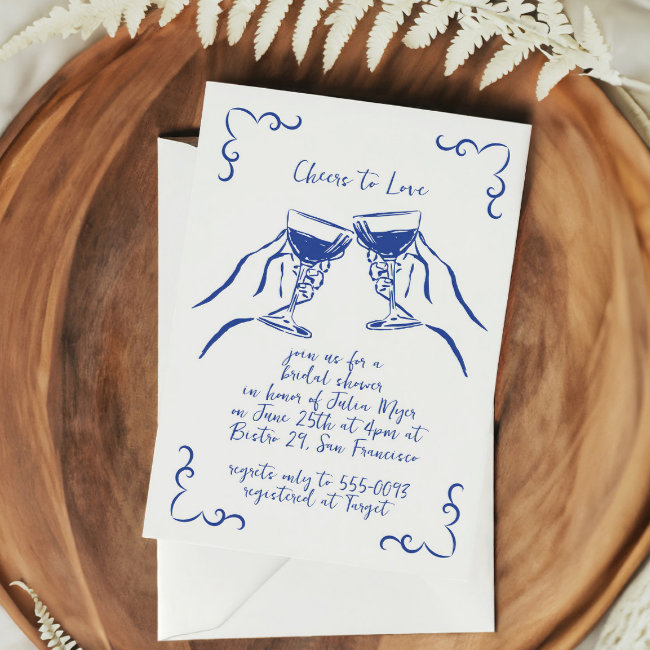 Cheers to Love
join us for a
bridal shower
in honor of Julia Myer
on June 25th at 4pm at
Bistro 29, San Francisco
regrets only to 555-0093
registered at Target